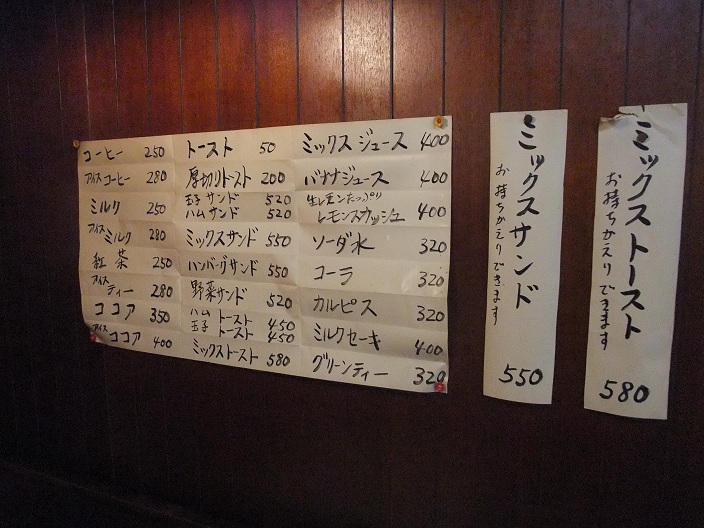 コーヒー 250
アイスコーヒー 280
ミルク 250
アイスミルク 280
紅茶 250
アイスティー 280
ココア 350
アイスココア 400
トースト 50
厚切りトースト 200
玉子サンド 520
ハムサンド 520
ミックスサンド 550
ハンバーグサンド 550
野菜サンド 520
ハムトースト 450
玉子トースト 450
ミックストースト 580
ミックスジュース 400
バナナジュース 400
生レモンたっぷり
レモンスカッシュ 400
ソーダ水 320
コーラ 320
カルピス 320
ミルクセーキ 400
グリーンティー 320
ミックスサンド
お持ちかえりできます
550
ミックストースト
お持ちかえりできます
580